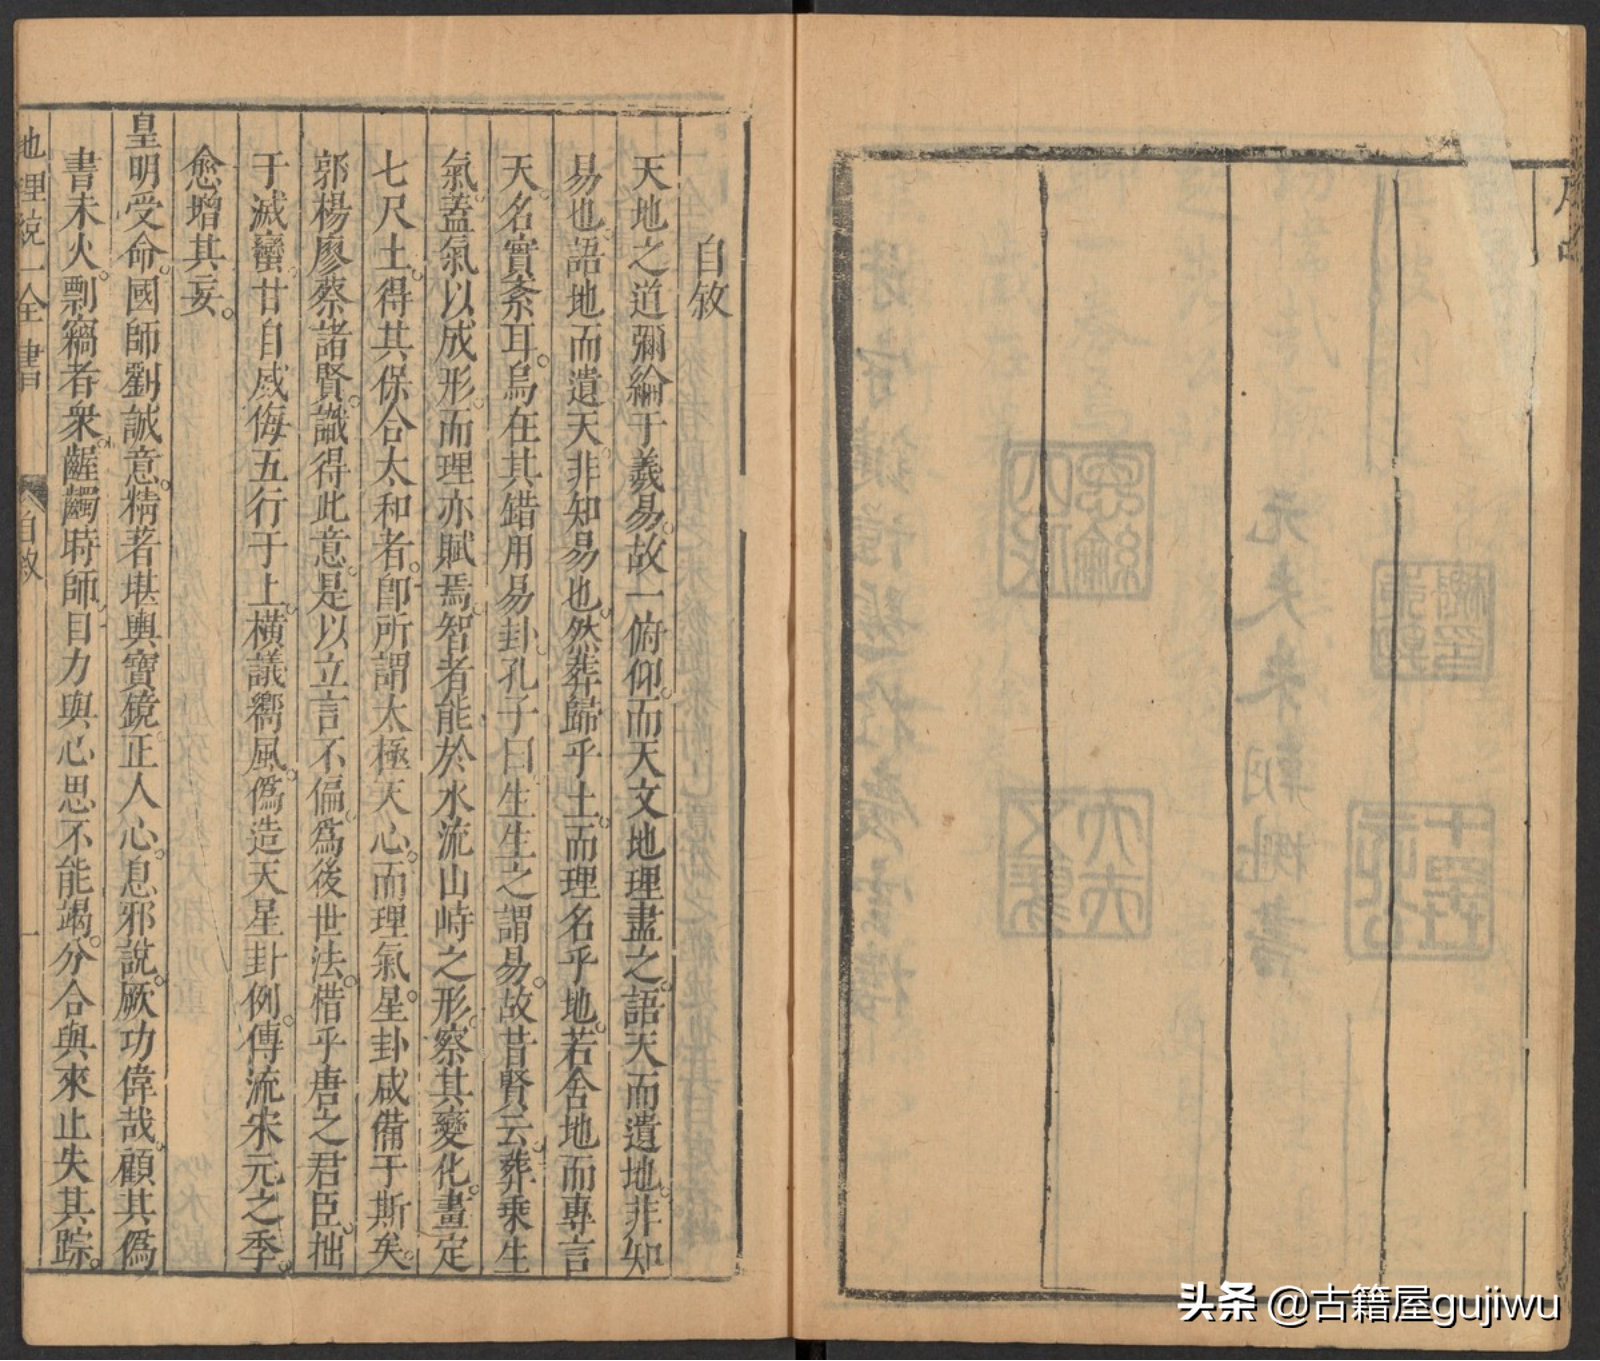 自敘
天地之道彌綸于羲易故一俯仰而天文地理盡之語天而遺地非知
易也語地而遺天非知易也然葬歸乎土而理名乎地若舍地而專言
天名實紊耳烏在其錯用易卦孔子曰生生之謂易故昔賢云葬乘生
氣蓋氣以成形而理亦賦焉智者能於水流山峙之形察其變化畫定
七尺土得其保合太和者卽所謂太極天心而理氣星卦咸備于斯矣
郭楊廖蔡諸賢識得此意是以立言不偏爲後世法惜乎唐之君臣拙
于滅蠻甘自威侮五行于上橫議嚮風僞造天星卦例傳流宋元之季
愈增其妄
皇明受命國師劉誠意精著堪輿寶鏡正人心息邪說厥功偉哉顧其僞
書未火剽竊者衆齷齪時師目力與心思不能竭分合與來止失其踪
地理統一全書
自敘
一
头条 @古籍屋gujiwu